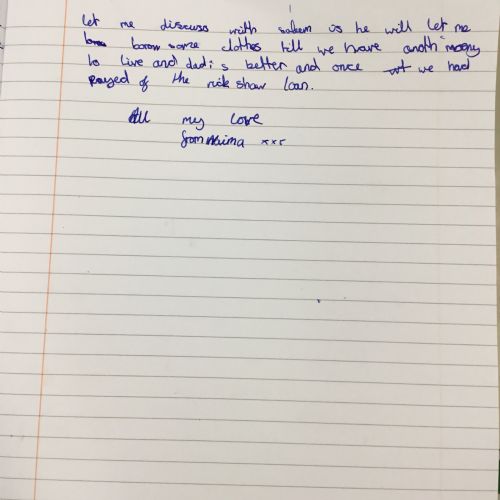 let me discuss with saleem is he will let me
borow some clothes till we have anoth money
to live and dad is better and once we had
payed of the rick shaw loan.
All my love
from Naima xxx